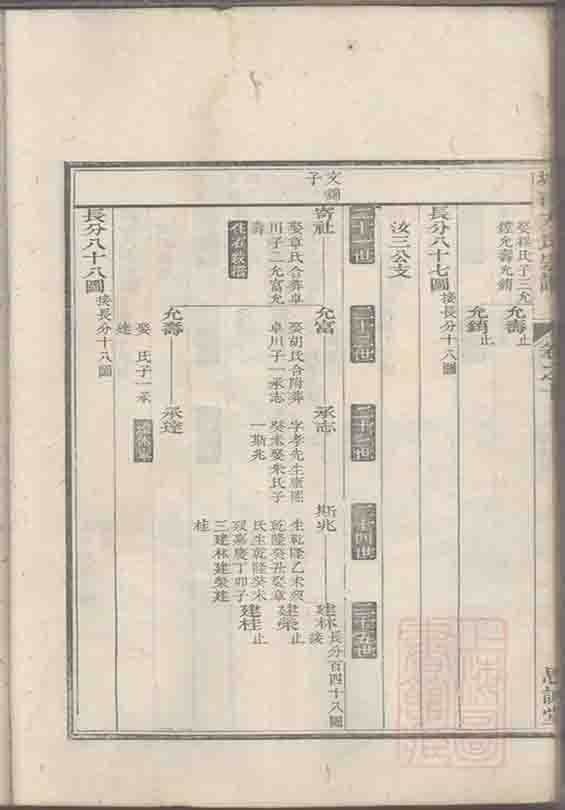 娶程氏子三允
鏜允壽允銷
允壽止
允銷止
長分八十七圖接長分十八圖
汝三公支
二十一世
二十二世
二十三世
二十四世
二十五世
文
子
寄社
娶章氏合葬卓
川子二允富允
壽
允富
娶胡氏合附葬
卓川子一承志
承志
字孝先生康熙
癸未娶朱氏子
一斯兆
斯兆
生乾隆乙未歿
乾隆癸丑娶章
氏生乾隆癸未
歿嘉慶丁卯子
三建林建榮建
桂
建林接長分百四十八圖
建榮止
建桂止
允壽
娶 氏子一承
達
承達
長分八十八圖接長分十八圖